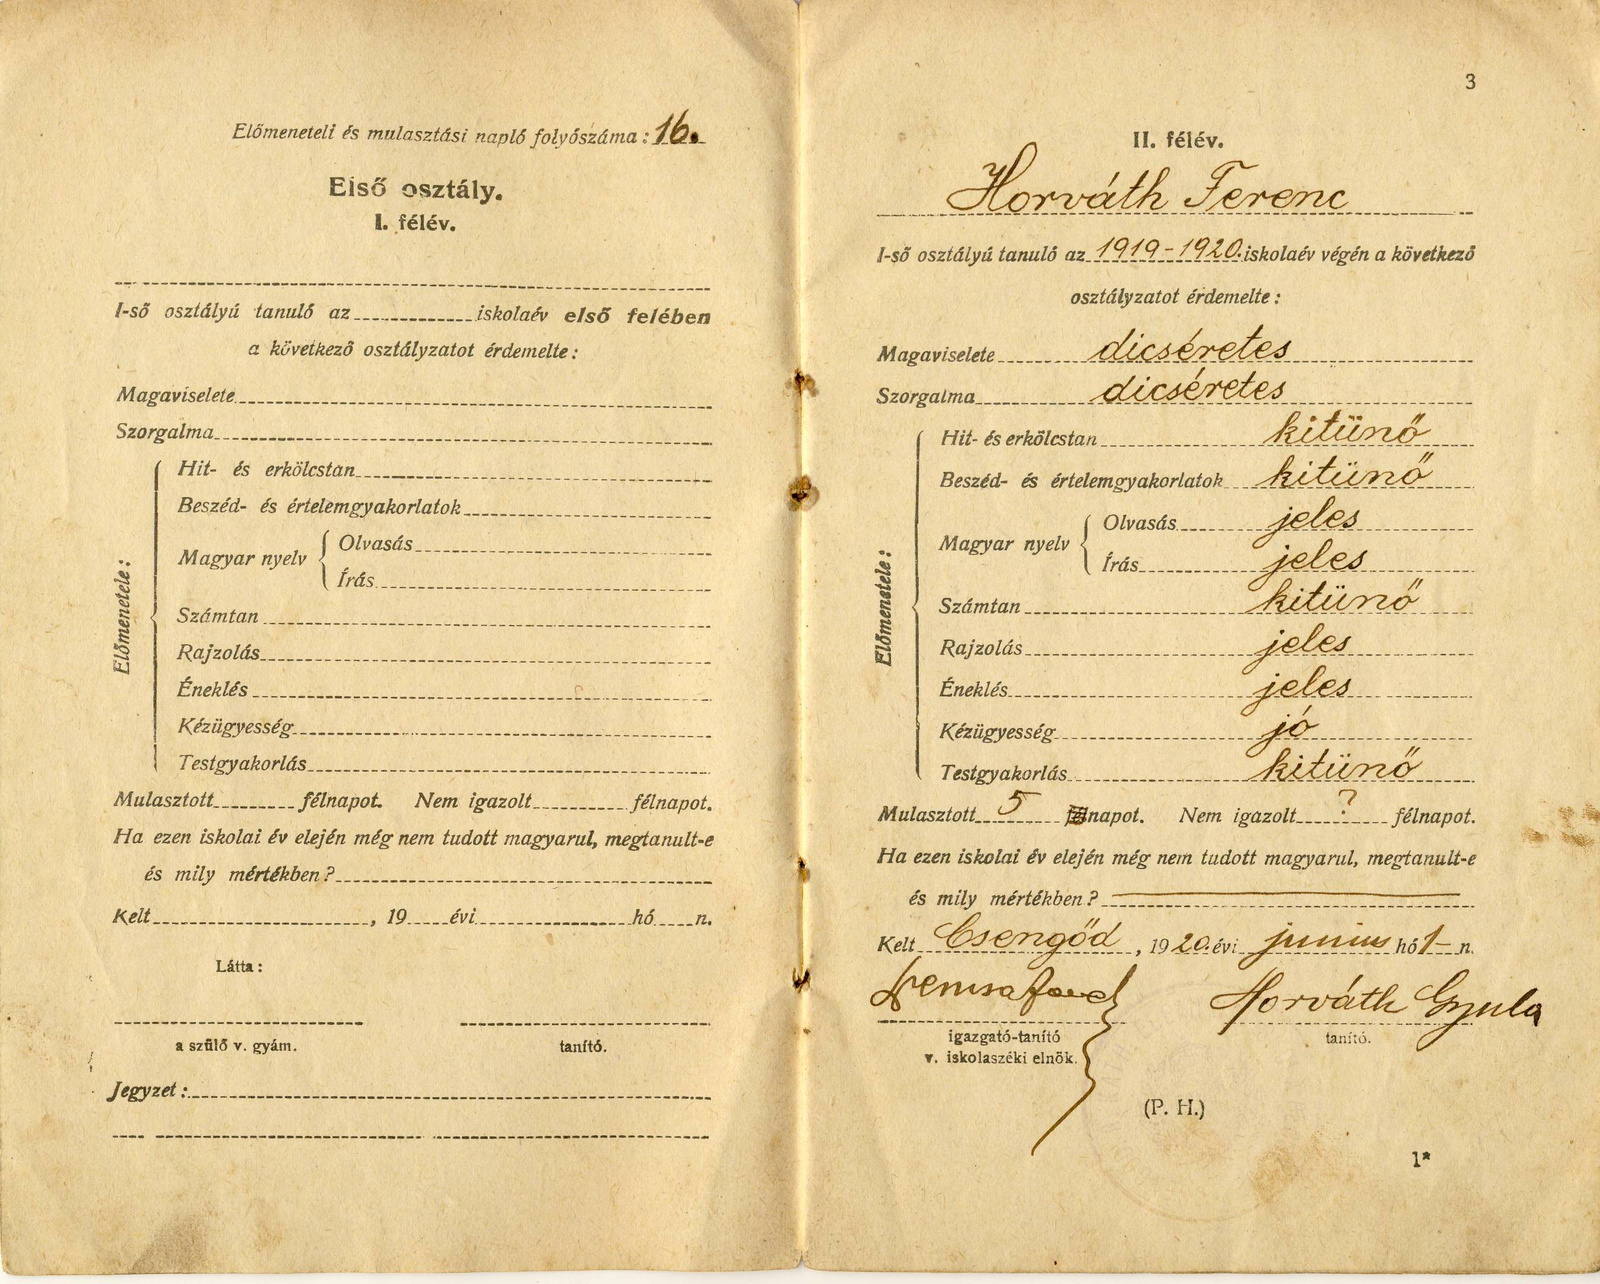 Előmeneteli és mulasztási napló folyószáma: 16.
Első osztály.
I. félév.
I-ső osztályú tanuló az iskolaév első felében
a következő osztályzatot érdemelte:
Magaviselete
Szorgalma
Előmenetele:
Hit- és erkölcstan
Beszéd- és értelemgyakorlatok
Magyar nyelv
Olvasás
Írás
Számtan
Rajzolás
Éneklés
Kézügyesség
Testgyakorlás
Mulasztott félnapot. Nem igazolt félnapot.
Ha ezen iskolai év elején még nem tudott magyarul, megtanult-e
és mily mértékben?
Kelt , 19 évi hó n.
Látta:
a szülő v. gyám. tanító.
Jegyzet:
3
II. félév.
Horváth Ferenc
I-ső osztályú tanuló az 1919-1920. iskolaév végén a következő
osztályzatot érdemelte:
Magaviselete dicséretes
Szorgalma dicséretes
Előmenetele:
Hit- és erkölcstan kitünő
Beszéd- és értelemgyakorlatok kitünő
Magyar nyelv
Olvasás jeles
Írás jeles
Számtan kitünő
Rajzolás jeles
Éneklés jeles
Kézügyesség jó
Testgyakorlás kitünő
Mulasztott 5 napot. Nem igazolt ? félnapot.
Ha ezen iskolai év elején még nem tudott magyarul, megtanult-e
és mily mértékben?
Kelt Csengőd, 1920. évi junius hó 1- n.
Horváth Gyula
igazgató-tanító tanító.
v. iskolaszéki elnök.
(P. H.)
1*